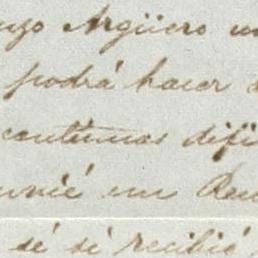 Argüero
podrá hacer
continuas difi
envié un
sé si recibió